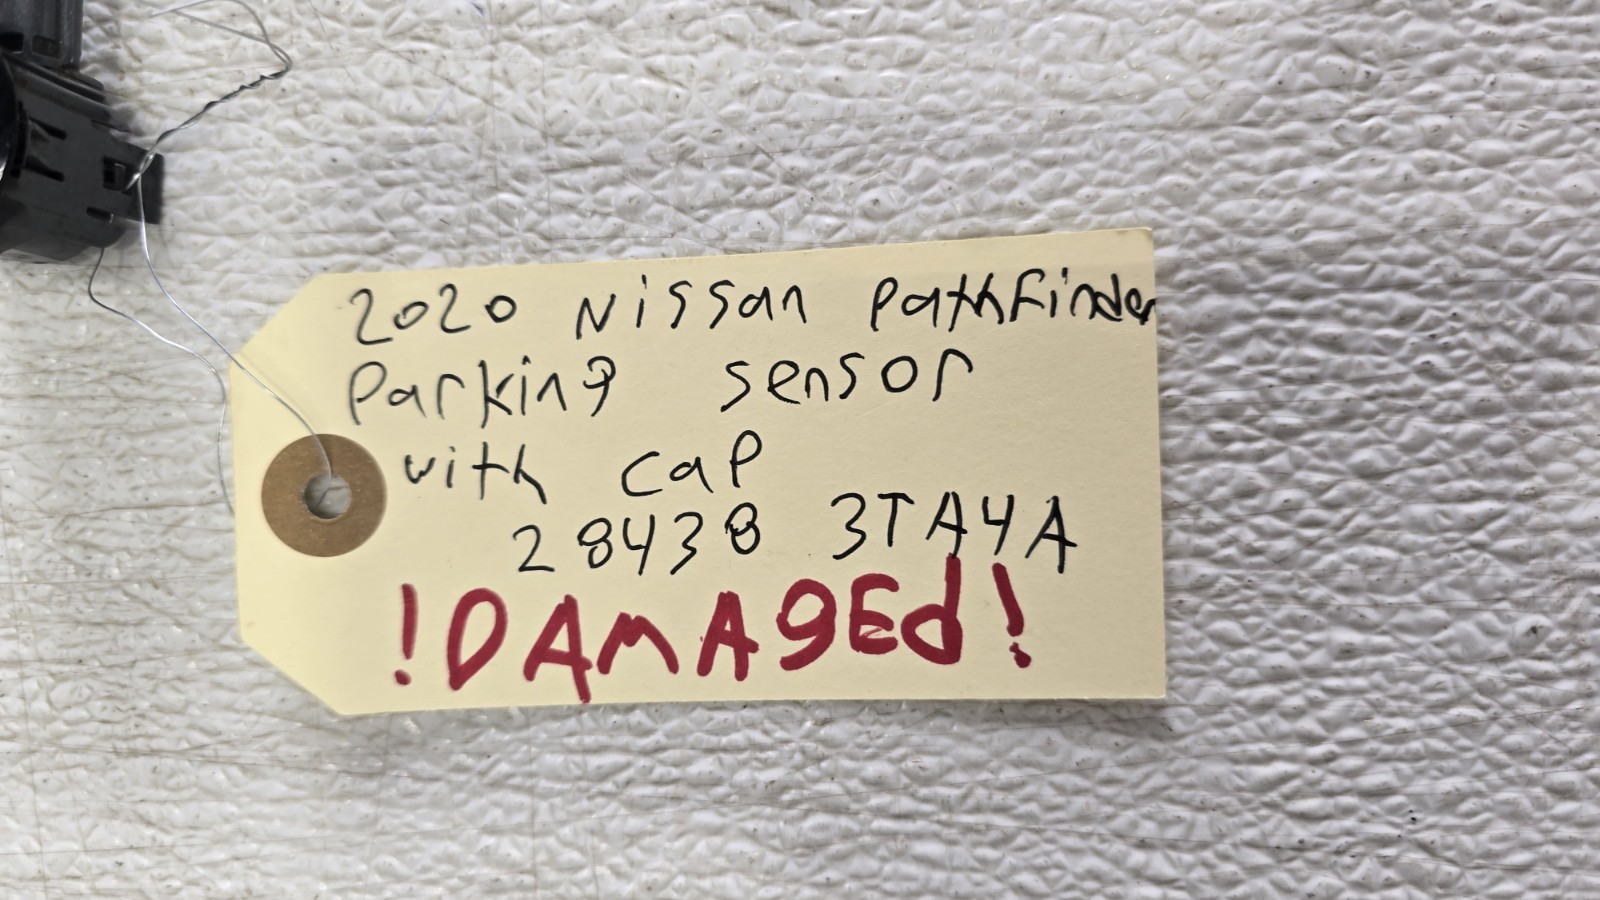 2020 Nissan Pathfinder
Parking sensor
with cap
28438 3TA4A
!DAMAgEd!